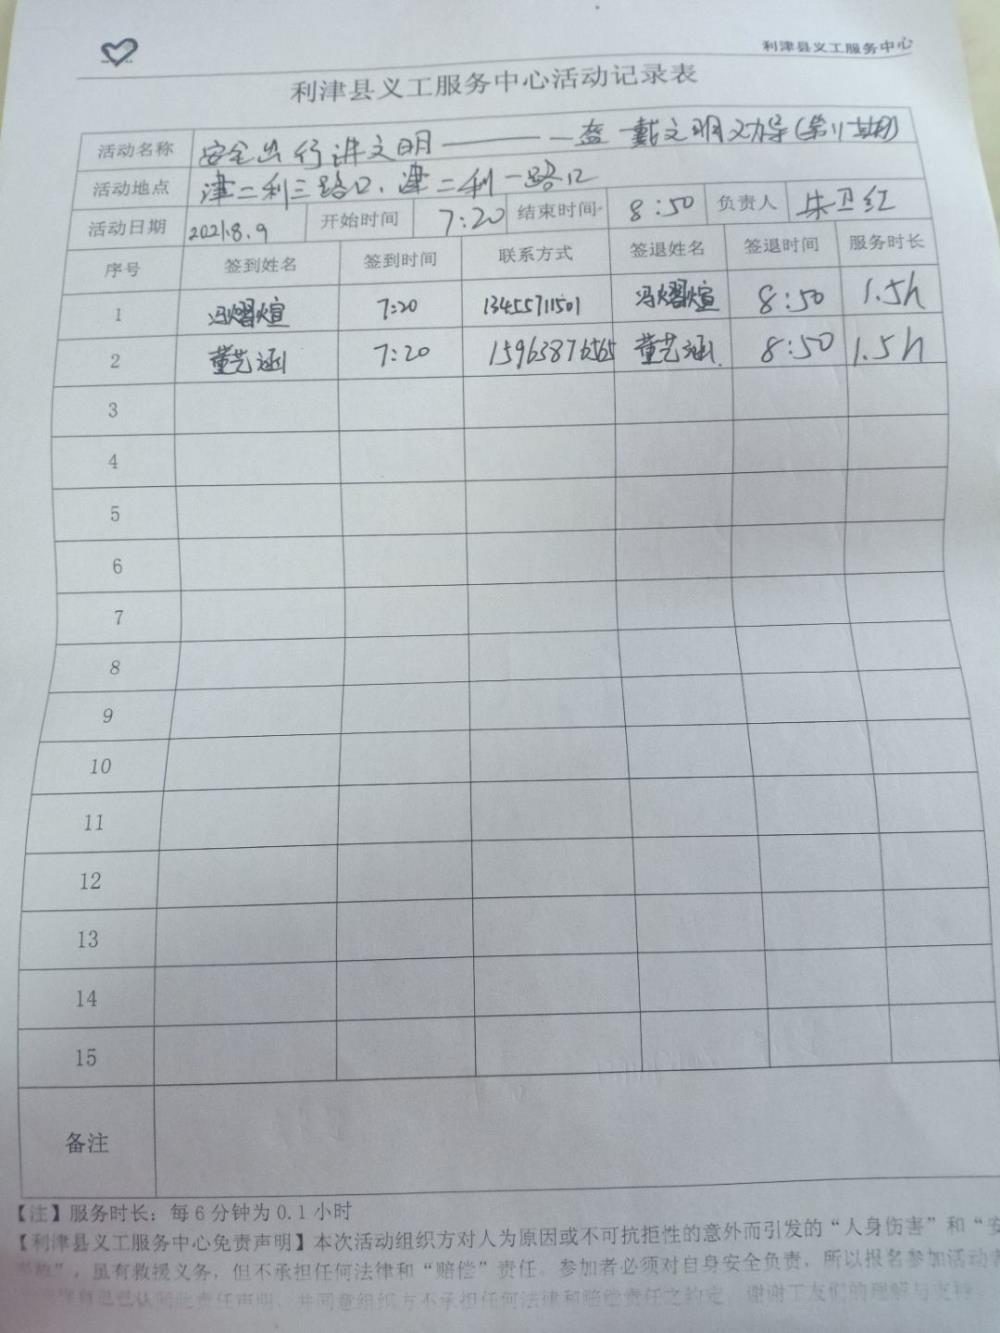 利津县义工服务中心
利津县义工服务中心活动记录表
活动名称 安全出行讲文明————一盔一戴文明劝导(第11期)
活动地点 津二利三路口、津二利一路口
活动日期 2021.8.9 开始时间 7:20 结束时间 8:50 负责人 朱卫红
序号 签到姓名 签到时间 联系方式 签退姓名 签退时间 服务时长
1 冯熠煊 7:20 13455711501 冯熠煊 8:50 1.5h
2 董艺涵 7:20 15963876565 董艺涵 8:50 1.5h
3
4
5
6
7
8
9
10
11
12
13
14
15
备注
【注】服务时长：每6分钟为0.1小时
【利津县义工服务中心免责声明】本次活动组织方对人为原因或不可抗拒性的意外而引发的“人身伤害”和“安
”，虽有救援义务，但不承担任何法律和“赔偿”责任。参加者必须对自身安全负责，所以报名参加活动者
认同此责任声明、并同意组织方不承担任何法律和赔偿责任之约定。谢谢义工友们的理解与支持。